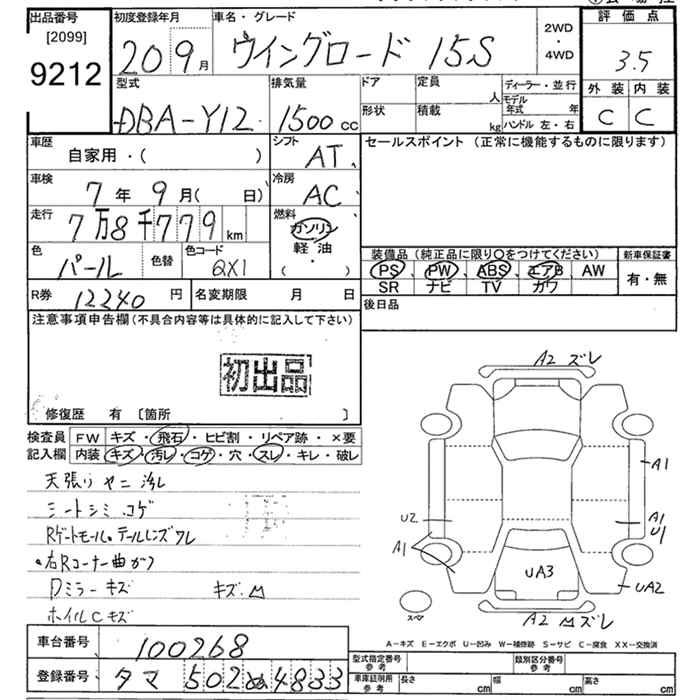 出品番号
[2099]
9212
初度登録年月
20 9月
車名・グレード
ウイングロード 15S
2WD
・
4WD
評価点
3.5
外装 内装
C C
型式
DBA-Y12
排気量
1500 cc
ドア
形状
定員 人
積載 kg
ディーラー・並行
モデル年式 年
ハンドル 左・右
車歴
自家用・( )
シフト
AT
セールスポイント (正常に機能するものに限ります)
車検
7年 9月( 日)
冷房
AC
走行
7万8千779 km
燃料
ガソリン
軽油
( ・ )
色
パール
色替
色コード
QX1
装備品 (純正品に限り〇をつけてください)
PS、PW、ABS、エアB、AW
SR ナビ TV カワ
新車保証書
有・無
R券 12240 円
名変期限 月 日
後日品
注意事項申告欄(不具合内容等は具体的に記入して下さい)
初出品
修復歴 有 [箇所 ]
検査員
記入欄
FW キズ・飛石・ヒビ割・リペア跡・×要
内装 キズ・汚レ・コゲ・穴・スレ・キレ・破レ
天張り ヤニ 汚レ
シートシミ コゲ
Rゲートモール・テールレンズ ワレ
右Rコーナー曲ガリ
Dミラー キズ
キズ
ホイルC キズ
A2 ズレ
A1
A1
U1
U2
A1
UA3
UA2
スペア
A2 ズレ
A-キズ E-エクボ U-凹み W-補修跡 S-サビ C-腐食 XX-交換済
車台番号
100268
登録番号
タマ 502 ぬ 4833
型式指定番号
参考
類別区分番号
参考
車庫証明用
参考
長さ cm
幅 cm
高さ cm